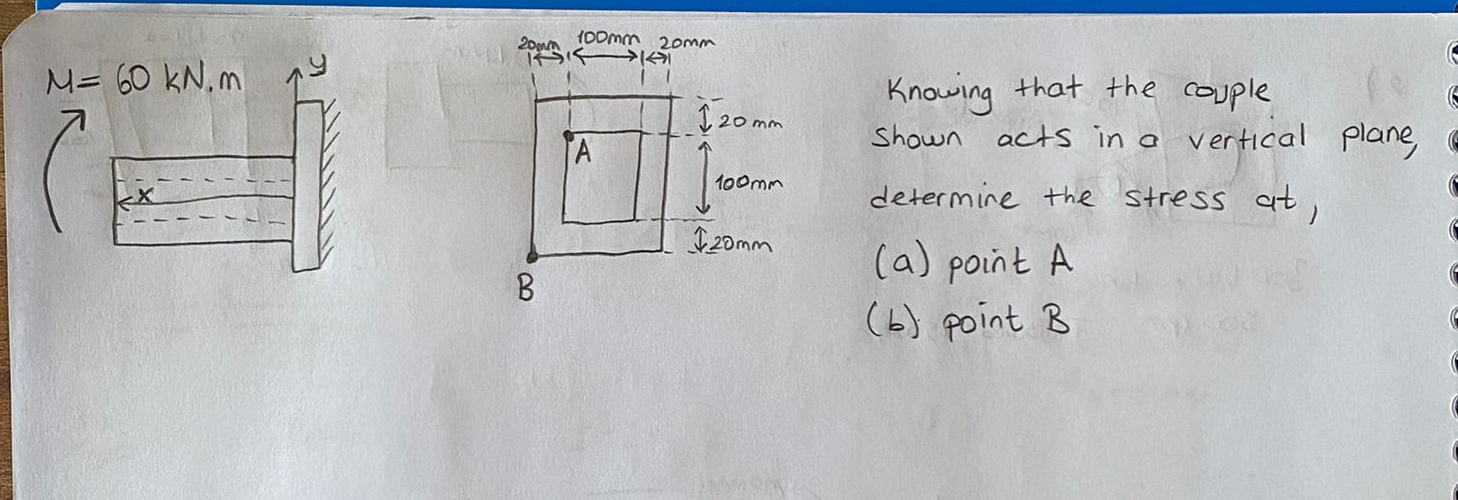 M= 60 kN.m
y
x
20mm 100mm 20mm
20mm
A
100mm
20mm
B
Knowing that the couple
shown acts in a vertical plane,
determine the stress at,
(a) point A
(b) point B